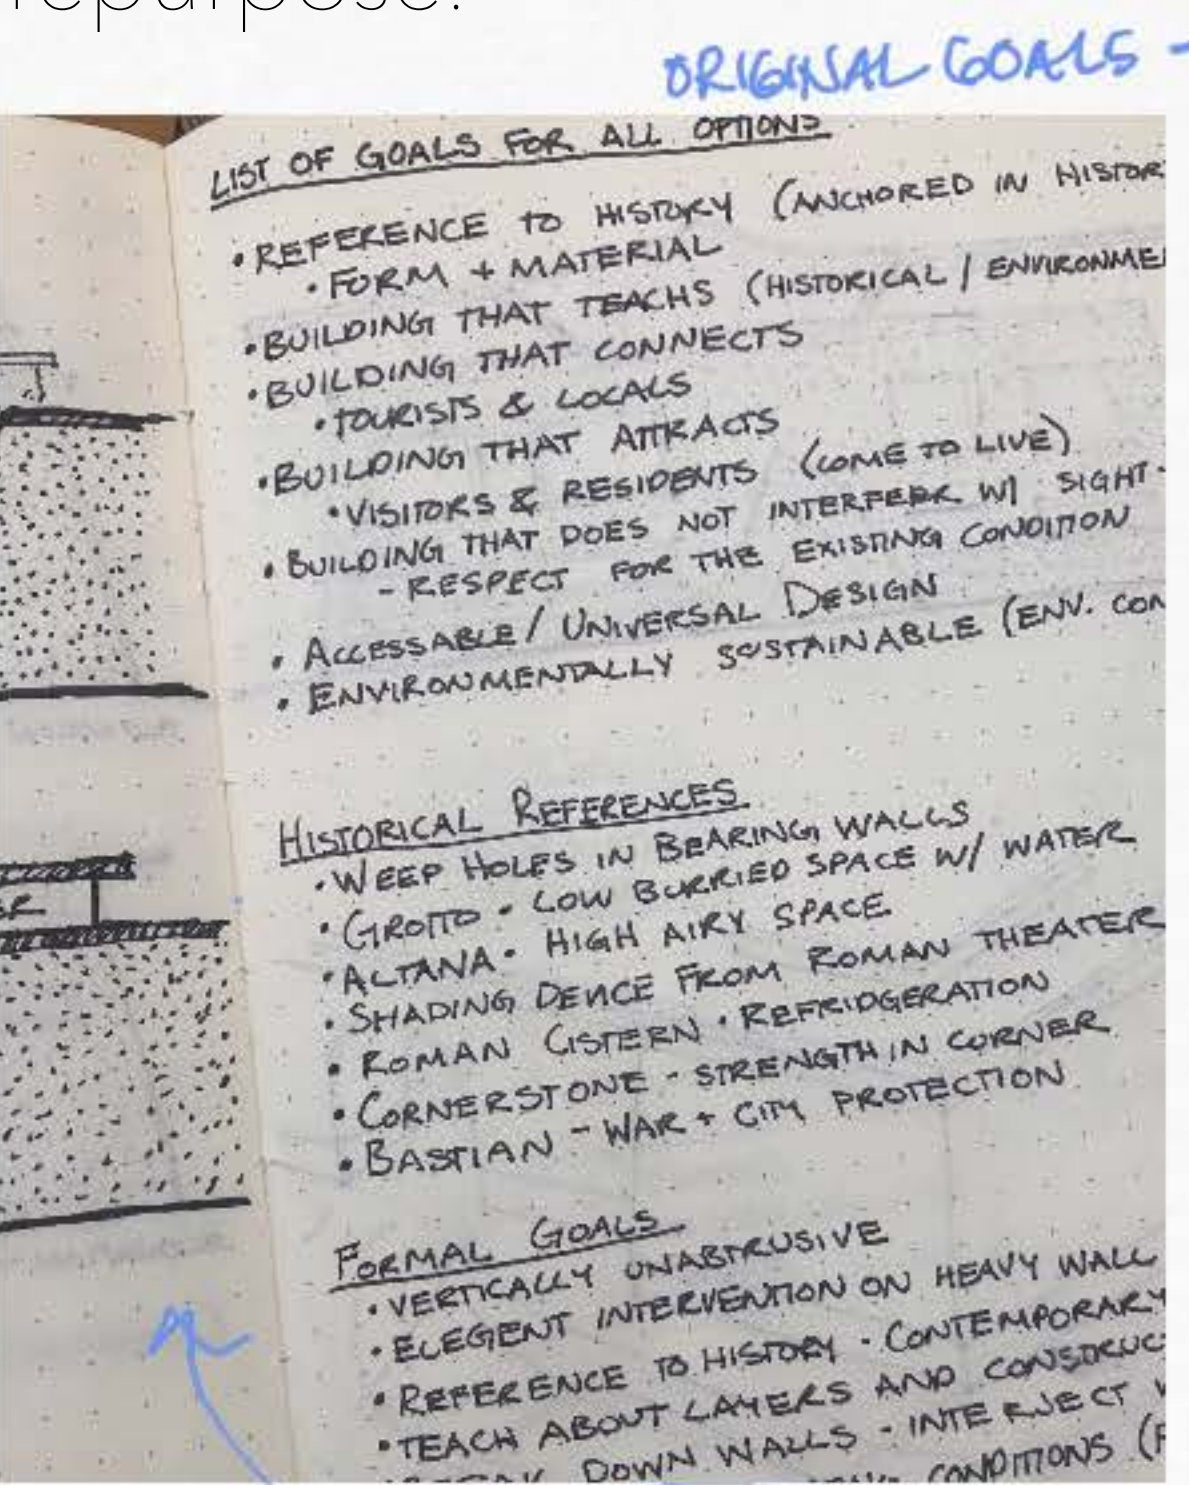 repurpose.
ORIGINAL GOALS -
LIST OF GOALS FOR ALL OPTIONS
• REFERENCE TO HISTORY (ANCHORED IN HISTOR
• FORM + MATERIAL
• BUILDING THAT TEACHS (HISTORICAL / ENVIRONME
• BUILDING THAT CONNECTS
• TOURISTS & LOCALS
• BUILDING THAT ATTRACTS
• VISITORS & RESIDENTS (COME TO LIVE)
• BUILDING THAT DOES NOT INTERFEER W/ SIGHT-
- RESPECT FOR THE EXISTING CONDITION
• ACCESSABLE / UNIVERSAL DESIGN
• ENVIRONMENTALLY SUSTAINABLE (ENV. CON
HISTORICAL REFERENCES
• WEEP HOLES IN BEARING WALLS
• GROTTO - LOW BURRIED SPACE W/ WATER
• ALTANA - HIGH AIRY SPACE
• SHADING DEVICE FROM ROMAN THEATER
• ROMAN CISTERN - REFRIDGERATION
• CORNERSTONE - STRENGTH IN CORNER
• BASTIAN - WAR + CITY PROTECTION
FORMAL GOALS
• VERTICALLY UNABTRUSIVE
• ELEGENT INTERVENTION ON HEAVY WALL
• REFERENCE TO HISTORY - CONTEMPORARY
• TEACH ABOUT LAYERS AND CONSTRUC
DOWN WALLS - INTERJECT
CONDITIONS (